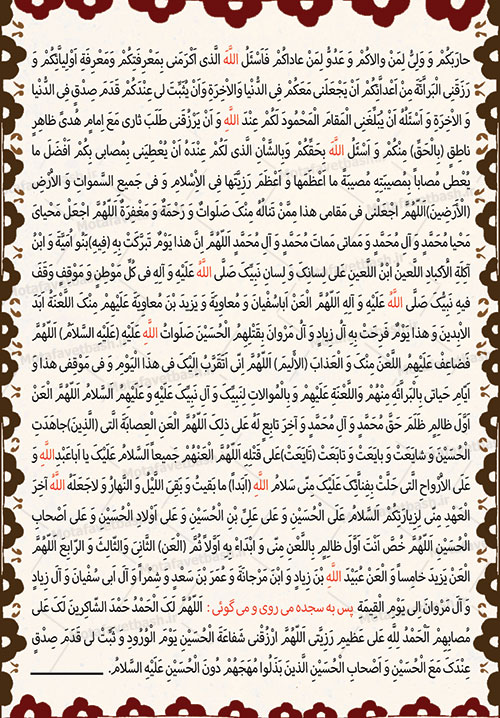 حارَبَكُمْ وَ وَلِىٌّ لِمَنْ والاكُمْ وَ عَدُوٌّ لِمَنْ عاداكُمْ فَاَسْئَلُ اللَّهَ الَّذى اَكْرَمَنى بِمَعْرِفَتِكُمْ وَمَعْرِفَةِ اَوْلِيآئِكُمْ وَ
رَزَقَنِى الْبَرآئَةَ مِنْ اَعْدآئِكُمْ اَنْ يَجْعَلَنى مَعَكُمْ فِى الدُّنْيا وَالاخِرَةِ وَاَنْ يُثَبِّتَ لى عِنْدَكُمْ قَدَمَ صِدْقٍ فِى الدُّنْيا
وَ الاخِرَةِ وَ اَسْئَلُهُ اَنْ يُبَلِّغَنِى الْمَقامَ الْمَحْمُودَ لَكُمْ عِنْدَ اللَّهِ وَ اَنْ يَرْزُقَنى طَلَبَ ثارى مَعَ اِمامٍ هُدىً ظاهِرٍ
ناطِقٍ (بِالْحَقِّ) مِنْكُمْ وَ اَسْئَلُ اللَّهَ بِحَقِّكُمْ وَبِالشَّاْنِ الَّذى لَكُمْ عِنْدَهُ اَنْ يُعْطِيَنى بِمُصابى بِكُمْ اَفْضَلَ ما
يُعْطى مُصاباً بِمُصيبَتِهِ مُصيبَةً ما اَعْظَمَها وَ اَعْظَمَ رَزِيَّتَها فِى الاِْسْلامِ وَ فى جَميعِ السَّمواتِ وَ الاْرْضِ
(الْأَرَضِينَ)اَللّهُمَّ اجْعَلْنى فى مَقامى هذا مِمَّنْ تَنالُهُ مِنْكَ صَلَواتٌ وَ رَحْمَةٌ وَ مَغْفِرَةٌ اَللّهُمَّ اجْعَلْ مَحْياىَ
مَحْيا مُحَمَّدٍ وَ آلِ مُحَمَّدٍ وَ مَماتى مَماتَ مُحَمَّدٍ وَ آلِ مُحَمَّدٍ اَللّهُمَّ اِنَّ هذا يَوْمٌ تَبَرَّكَتْ بِهِ (فِيهِ)بَنُو اُمَيَّةَ وَ ابْنُ
آكِلَةِ الْاَكبادِ اللَّعينُ ابْنُ اللَّعينِ عَلى لِسانِكَ وَ لِسانِ نَبِيِّكَ صَلَّى اللَّهُ عَلَيْهِ وَ آلِهِ فى كُلِّ مَوْطِنٍ وَ مَوْقِفٍ وَقَفَ
فيهِ نَبِيُّكَ صَلَّى اللَّهُ عَلَيْهِ وَ آلِهِ اَللّهُمَّ الْعَنْ اَباسُفْيانَ وَ مُعاوِيَةَ وَ يَزيدَ بْنَ مُعاوِيَةَ عَلَيْهِمْ مِنْكَ اللَّعْنَةُ اَبَدَ
الابِدينَ وَ هذا يَوْمٌ فَرِحَتْ بِهِ آلُ زِيادٍ وَ آلُ مَرْوانَ بِقَتْلِهِمُ الْحُسَيْنَ صَلَواتُ اللَّهِ عَلَيْهِ (عَلَيْهِ السَّلامُ) اَللّهُمَّ
فَضاعِفْ عَلَيْهِمُ اللَّعْنَ مِنْكَ وَ الْعَذابَ (الْأَلِيمَ) اَللّهُمَّ اِنّى اَتَقَرَّبُ اِلَيْكَ فى هذَا الْيَوْمِ وَ فى مَوْقِفى هذا وَ
اَيّامِ حَياتى بِالْبَرآئَهِ مِنْهُمْ وَاللَّعْنَةِ عَلَيْهِمْ وَ بِالْمُوالاتِ لِنَبِيِّكَ وَ آلِ نَبِيِّكَ عَلَيْهِ وَ عَلَيْهِمُ السَّلامُ اَللّهُمَّ الْعَنْ
اَوَّلَ ظالِمٍ ظَلَمَ حَقَّ مُحَمَّدٍ وَ آلِ مُحَمَّدٍ وَ آخِرَ تابِعٍ لَهُ عَلى ذلِكَ اَللّهُمَّ الْعَنِ الْعِصابَةَ الَّتى (الَّذِينَ)جاهَدَتِ
الْحُسَيْنَ وَ شايَعَتْ وَ بايَعَتْ وَ تابَعَتْ (تَايَعَتْ)عَلى قَتْلِهِ اَللّهُمَّ الْعَنْهُمْ جَميعاً اَلسَّلامُ عَلَيْكَ يا اَباعَبْدِاللَّهِ وَ
عَلَى الاَْرواحِ الَّتى حَلَّتْ بِفِنائِكَ عَلَيْكَ مِنّى سَلامُ اللَّهِ (أَبَداً) ما بَقيتُ وَ بَقِىَ اللَّيْلُ وَ النَّهارُ وَ لاجَعَلَهُ اللَّهُ آخِرَ
الْعَهْدِ مِنّى لِزِيارَتِكُمْ اَلسَّلامُ عَلَى الْحُسَيْنِ وَ عَلى عَلِىِّ بْنِ الْحُسَيْنِ وَ عَلى اَوْلادِ الْحُسَيْنِ وَ عَلى اَصْحابِ
الْحُسَيْنِ اَللّهُمَّ خُصَّ اَنْتَ اَوَّلَ ظالِمٍ بِاللَّعْنِ مِنّى وَ ابْدَاءْ بِهِ اَوَّلاً ثُمَّ (الْعَنِ) الثّانِىَ وَالثّالِثَ وَ الرّابِعَ اَللّهُمَّ
الْعَنْ يَزيدَ خامِساً وَ الْعَنْ عُبَيْدَ اللَّهِ بْنَ زِيادٍ وَ ابْنَ مَرْجانَةَ وَ عُمَرَ بْنَ سَعْدٍ وَ شِمْراً وَ آلَ اَبى سُفْيانَ وَ آلَ زِيادٍ
وَ آلَ مَرْوانَ اِلى يَوْمِ الْقِيمَةِ پس به سجده می روی و می گوئی : اَللّهُمَّ لَكَ الْحَمْدُ حَمْدَ الشّاكِرينَ لَكَ عَلى
مُصابِهِمْ اَلْحَمْدُ لِلَّهِ عَلى عَظيمِ رَزِيَّتى اَللّهُمَّ ارْزُقْنى شَفاعَةَ الْحُسَيْنِ يَوْمَ الْوُرُودِ وَ ثَبِّتْ لى قَدَمَ صِدْقٍ
عِنْدَكَ مَعَ الْحُسَيْنِ وَ اَصْحابِ الْحُسَيْنِ الَّذينَ بَذَلُوا مُهَجَهُمْ دُونَ الْحُسَيْنِ عَلَيْهِ السَّلامُ.